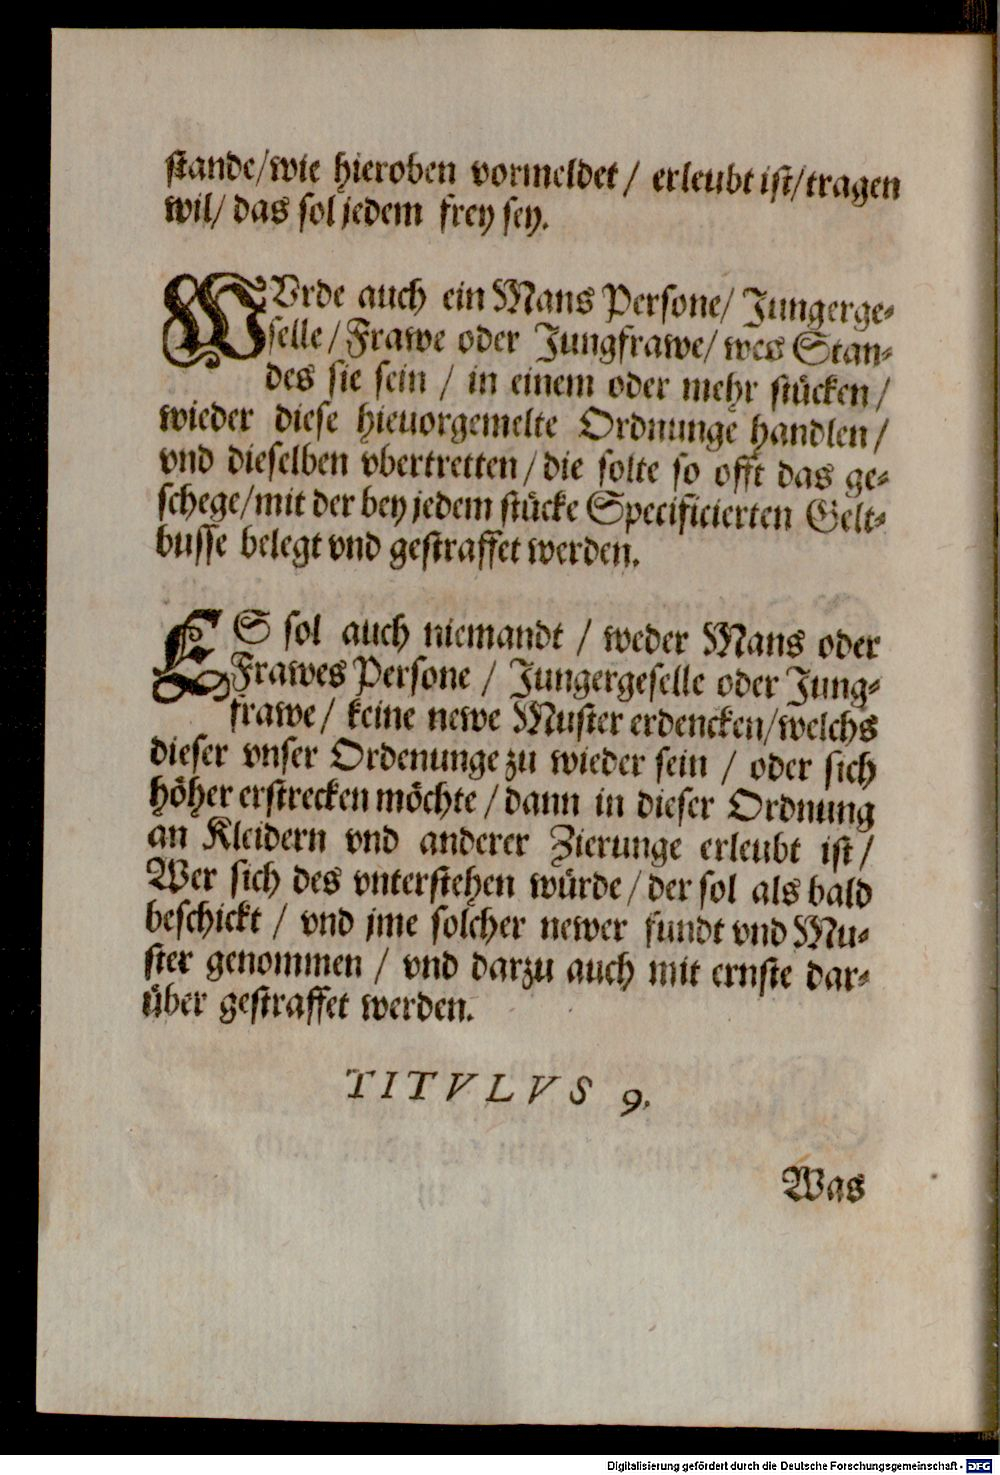 stande/wie hieroben vormeldet / erleubt ist/tragen
wil/ das sol jedem frey sey.
WVrde auch ein Mans Persone/ Jungerge-
selle / Frawe oder Jungfrawe/ wes Stan-
des sie sein / in einem oder mehr stücken /
wieder diese hieuorgemelte Ordnunge handlen /
vnd dieselben vbertretten / die solte so offt das ge-
schege/mit der bey jedem stücke Specificierten Gelt-
busse belegt vnd gestraffet werden.
ES sol auch niemandt / weder Mans oder
Frawes Persone / Jungergeselle oder Jung-
frawe / keine newe Muster erdencken/welchs
dieser vnser Ordenunge zu wieder sein / oder sich
höher erstrecken möchte / dann in dieser Ordnung
an Kleidern vnd anderer Zierunge erleubt ist /
Wer sich des vnterstehen würde / der sol als bald
beschickt / vnd jme solcher newer fundt vnd Mu-
ster genommen / vnd darzu auch mit ernste dar-
über gestraffet werden.
TITVLVS 9.
Was
Digitalisierung gefördert durch die Deutsche Forschungsgemeinschaft - DFG